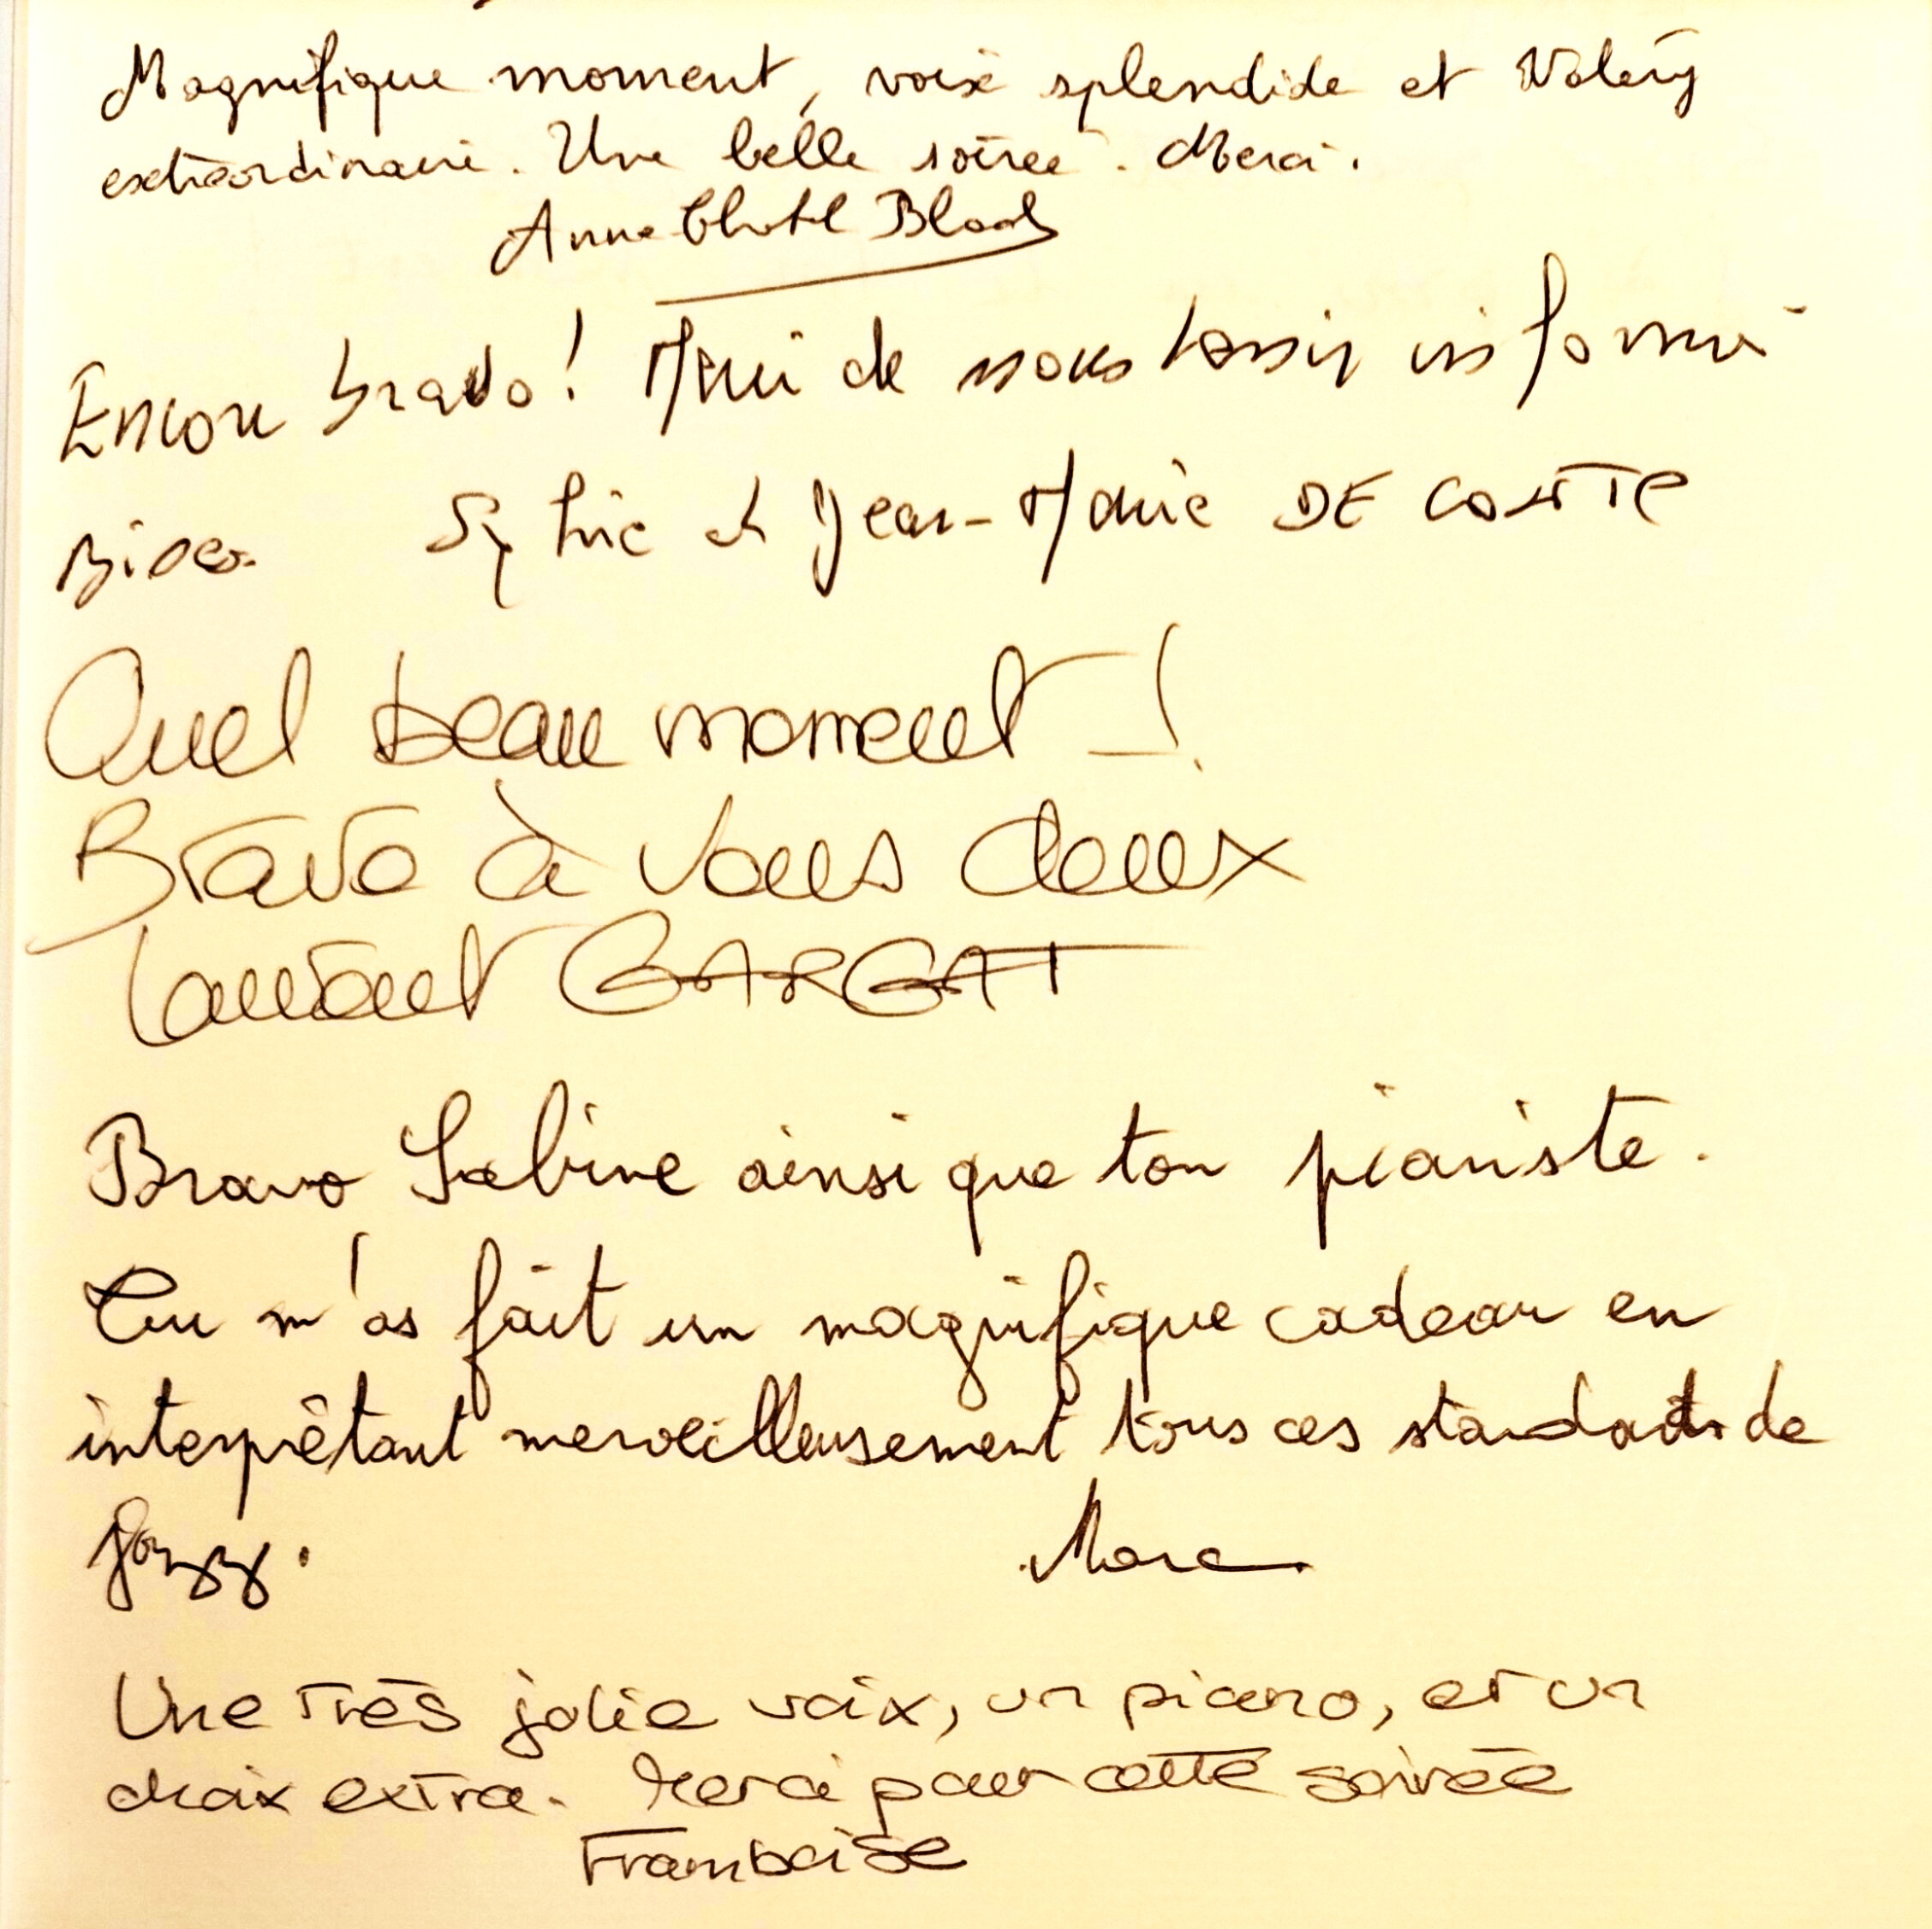 Magnifique moment, voix splendide et Valéry
extraordinaire. Une belle soirée. Merci.
Anne
Encore bravo! Merci de nous tenir informé
Bises Sylvie et Jean-Marie DE CONTE
Quel beau moment !
Bravo à vous deux
Laurent GARGAT
Bravo Sabine ainsi que ton pianiste.
Tu m'as fait un magnifique cadeau en
interprêtant merveilleusement tous ces standards de
Jazz. Marc
Une très jolie voix, un piano, et un
choix extra. Merci pour cette soirée
Framboise